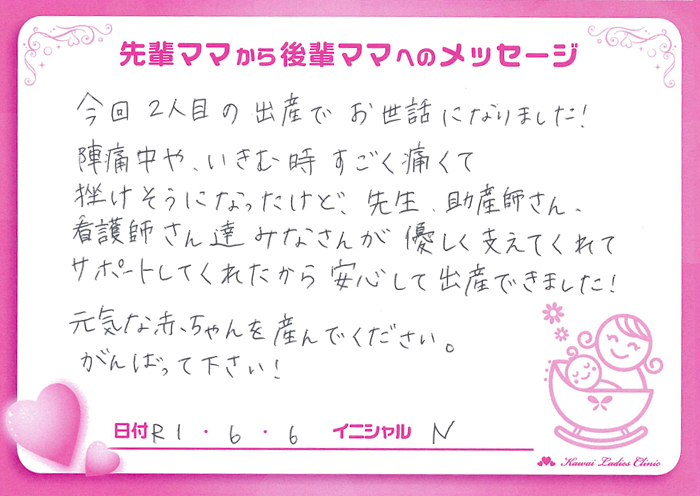 先輩ママから後輩ママへのメッセージ
今回2人目の出産でお世話になりました!
陣痛中や、いきむ時すごく痛くて
挫けそうになったけど、先生、助産師さん、
看護師さん達みなさんが優しく支えてくれて
サポートしてくれたから安心して出産できました!
元気な赤ちゃんを産んでください。
がんばって下さい!
日付 R1・6・6 イニシャル N
Kawai Ladies Clinic